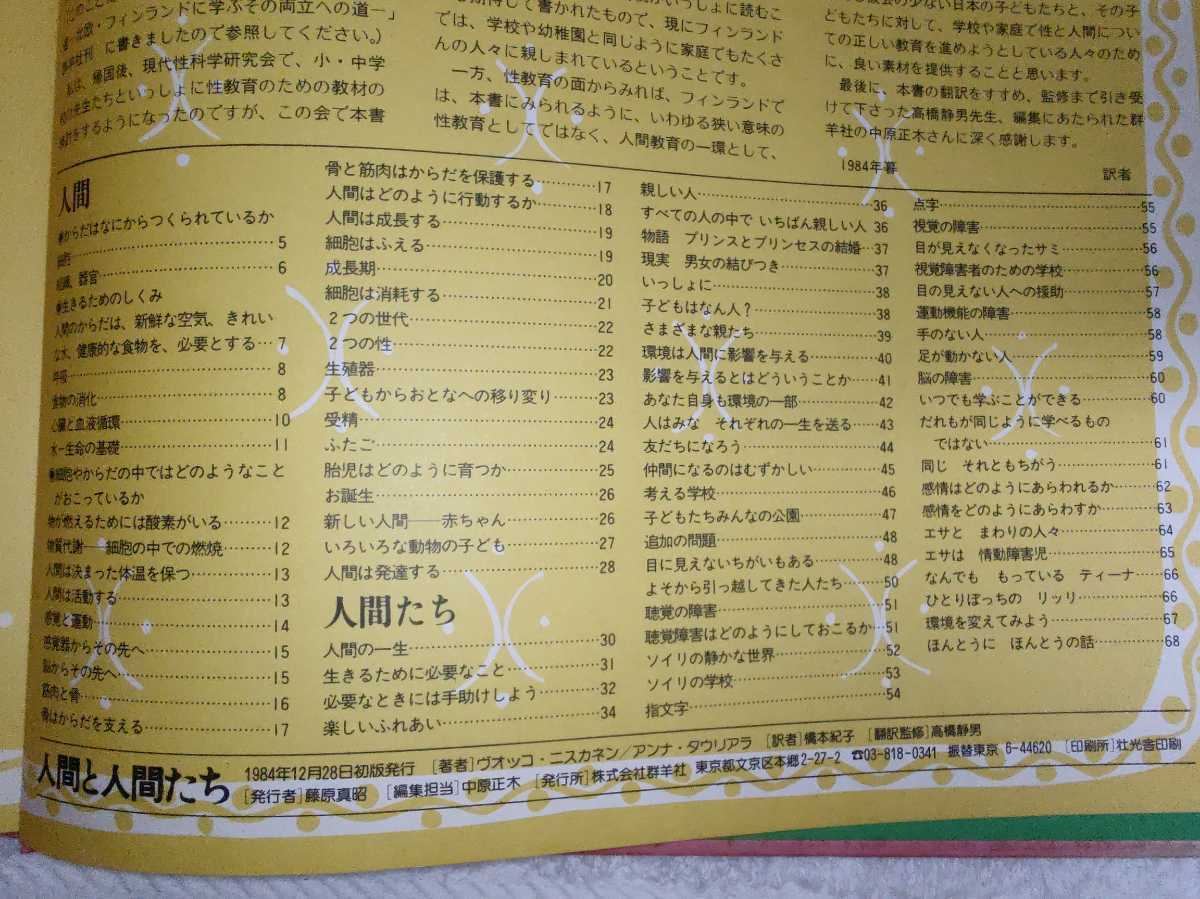 省・北欧・フィンランドに学ぶその両立への道―」
群羊社刊 に書きましたので参照してください。)
私は、帰国後、現代性科学研究会で、小・中学
校の先生たちといっしょに性教育のための教材の
検討をするようになったのですが、この会で本書
期待して書かれたもので、現にフィンランド
では、学校や幼稚園と同じように家庭でもたくさ
んの人々に親しまれているということです。
一方、性教育の面からみれば、フィンランドで
は、本書にみられるように、いわゆる狭い意味の
性教育としてではなく、人間教育の一環として、
の少ない日本の子どもたちと、その子
どもたちに対して、学校や家庭で性と人間につい
ての正しい教育を進めようとしている人々のため
に、良い素材を提供することと思います。
最後に、本書の翻訳をすすめ、監修まで引き受
けて下さった高橋静男先生、編集にあたられた群
羊社の中原正木さんに深く感謝します。
1984年暮 訳者
人間
●からだはなにからつくられているか
細胞 5
組織、器官 6
●生きるためのしくみ
人間のからだは、新鮮な空気、きれい
な水、健康的な食物を、必要とする…7
呼吸 8
食物の消化 8
心臓と血液循環 10
水―生命の基礎 11
●細胞やからだの中ではどのようなこと
がおこっているか
物が燃えるためには酸素がいる 12
物質代謝――細胞の中での燃焼 12
人間は決まった体温を保つ 13
人間は活動する 13
感覚と運動 14
感覚器からその先へ 15
脳からその先へ 15
筋肉と骨 16
骨はからだを支える 17
骨と筋肉はからだを保護する 17
人間はどのように行動するか 18
人間は成長する 19
細胞はふえる 19
成長期 20
細胞は消耗する 21
2つの世代 22
2つの性 22
生殖器 23
子どもからおとなへの移り変り 23
受精 24
ふたご 24
胎児はどのように育つか 25
お誕生 26
新しい人間――赤ちゃん 26
いろいろな動物の子ども 27
人間は発達する 28
人間たち
人間の一生 30
生きるために必要なこと 31
必要なときには手助けしよう 32
楽しいふれあい 34
親しい人 36
すべての人の中で いちばん親しい人 36
物語 プリンスとプリンセスの結婚…37
現実 男女の結びつき 37
いっしょに 38
子どもはなん人? 38
さまざまな親たち 39
環境は人間に影響を与える 40
影響を与えるとはどういうことか 41
あなた自身も環境の一部 42
人はみな それぞれの一生を送る 43
友だちになろう 44
仲間になるのはむずかしい 45
考える学校 46
子どもたちみんなの公園 47
追加の問題 48
目に見えないちがいもある 48
よそから引っ越してきた人たち 50
聴覚の障害 51
聴覚障害はどのようにしておこるか 51
ソイリの静かな世界 52
ソイリの学校 53
指文字 54
点字 55
視覚の障害 55
目が見えなくなったサミ 56
視覚障害者のための学校 56
目の見えない人への援助 57
運動機能の障害 58
手のない人 58
足が動かない人 59
脳の障害 60
いつでも学ぶことができる 60
だれもが同じように学べるもの
ではない 61
同じ それともちがう 61
感情はどのようにあらわれるか 62
感情をどのようにあらわすか 63
エサと まわりの人々 64
エサは 情動障害児 65
なんでも もっている ティーナ 66
ひとりぼっちの リッリ 66
環境を変えてみよう 67
ほんとうに ほんとうの話 68
人間と人間たち
1984年12月28日初版発行 [著者]ヴオッコ・ニスカネン/アンナ・タウリアラ [訳者]橋本紀子 [翻訳監修]高橋静男
[発行者]藤原真昭 [編集担当]中原正木 [発行所]株式会社群羊社 東京都文京区本郷2-27-2 ☎03-818-0341 振替東京 6-44620 [印刷所]壮光舎印刷